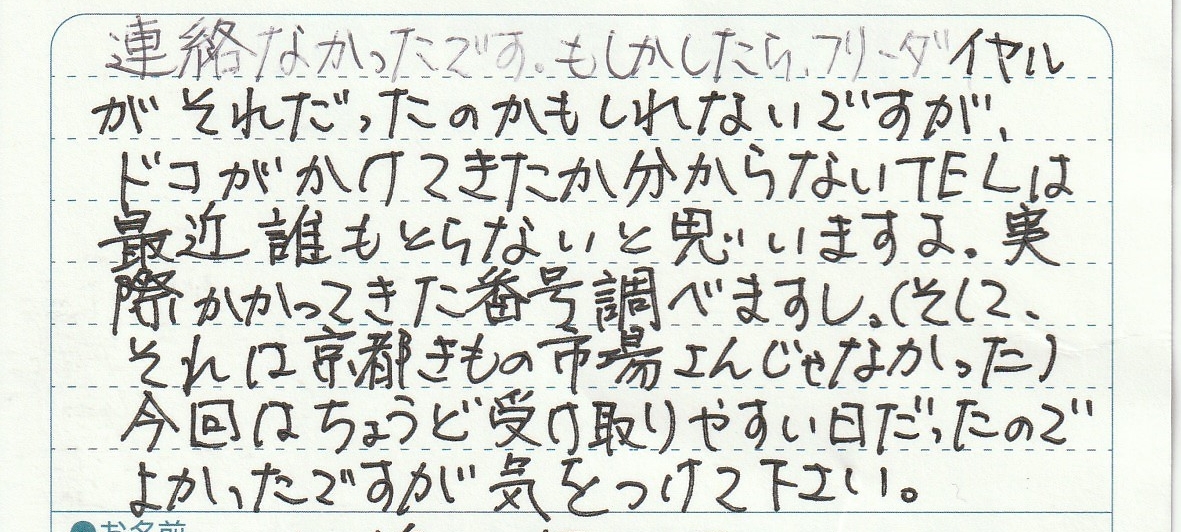 連絡なかったです。もしかしたら、フリーダイヤル
がそれだったのかもしれないですが、
ドコがかけてきたか分からないTELは
最近誰もとらないと思いますよ。実
際かかってきた番号調べますし。(そして、
それは京都きもの市場さんじゃなかった)
今回はちょうど受け取りやすい日だったので
よかったですが気をつけて下さい。
●お名前